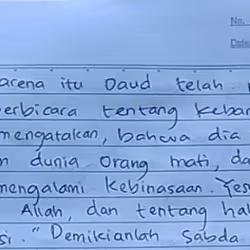 No.
Date
arena itu Daud telah
erbicara tentang Keban
mengatakan, bahwa dia
dunia orang mati, da
mengalami Kebinasaan. Yes
Allah, dan tentang hal
si." Demikianlah Sabda